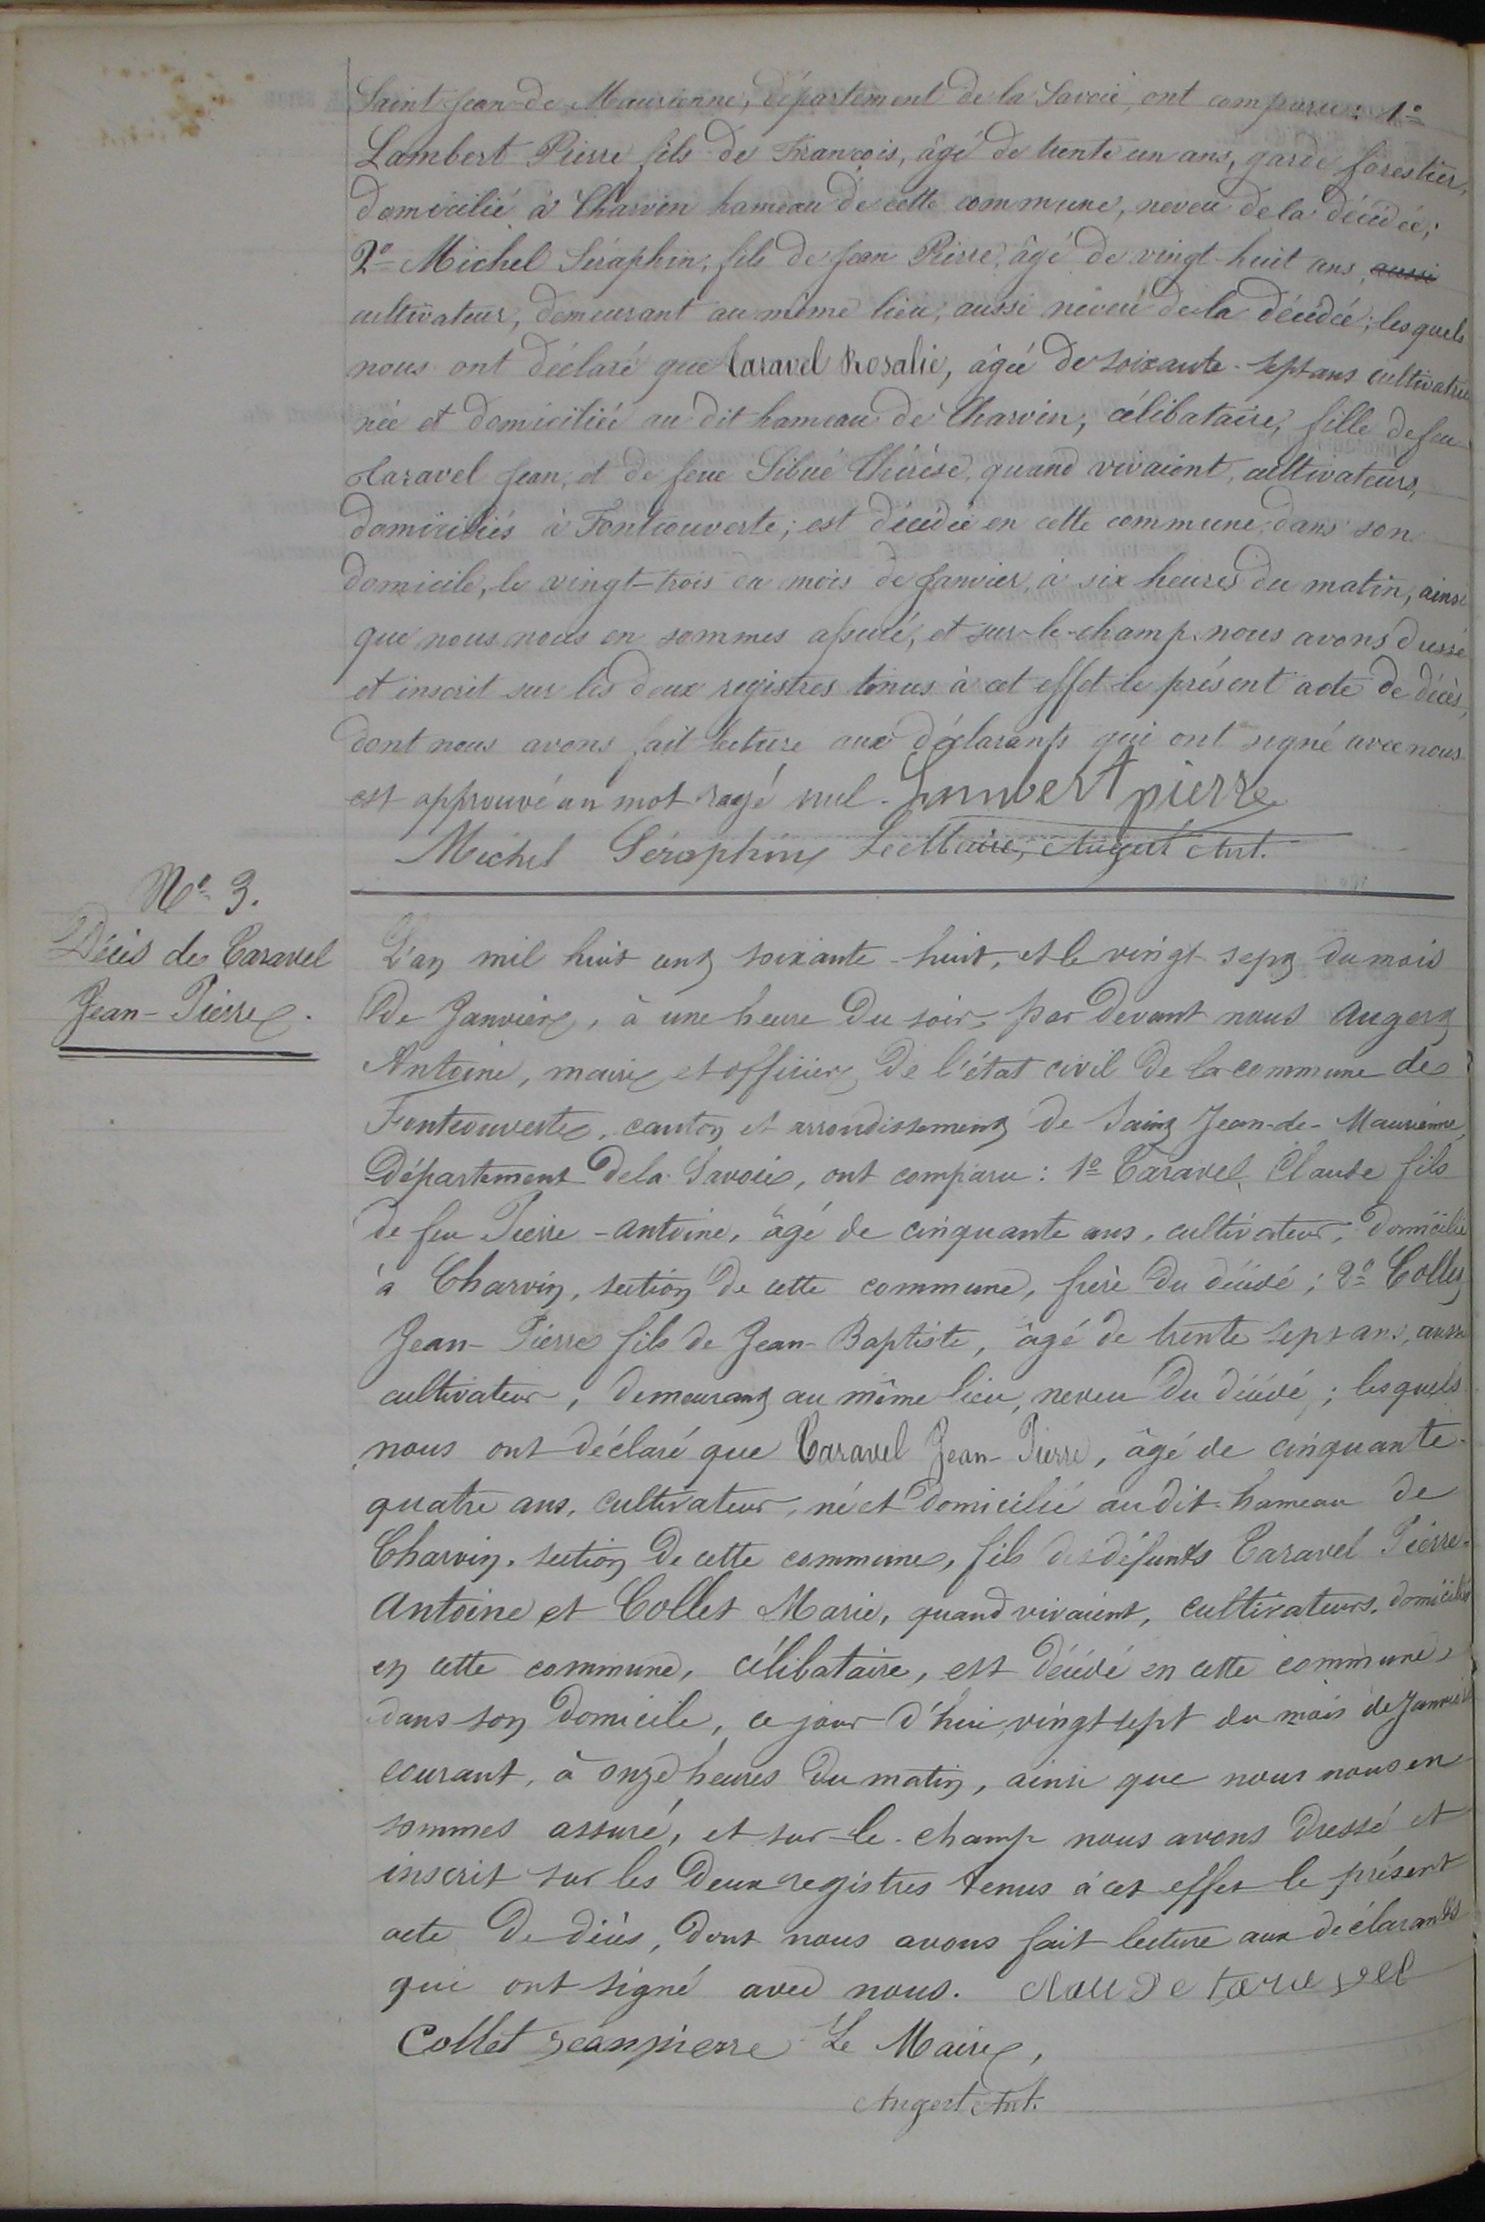 Saint Jean-de-Maurienne, département de la Savoie, ont comparu : 1º
Lambert Pierre fils de François, âgé de trente un ans, garde forestier,
domicilié à Charvin hameau de cette commune, neveu de la décédée;
2º Michel Séraphin, fils de Jean Pierre, âgé de vingt-huit ans, aussi
cultivateur, demeurant au même lieu, aussi neveu de la décédée; lesquels
nous ont déclaré que Taravel Rosalie, âgée de soixante-sept ans cultivatrice
née et domiciliée au dit hameau de Charvin, célibataire, fille de feu
Taravel Jean, et de feue Sibué Thérèse, quand vivaient, cultivateurs,
domiciliés à Fontcouverte; est décédée en cette commune, dans son
domicile, le vingt-trois du mois de Janvier, à six heures du matin, ainsi
que nous nous en sommes assuré, et sur-le-champ nous avons dressé
et inscrit sur les deux registres tenus à cet effet le présent acte de décès,
dont nous avons fait lecture aux déclarants qui ont signé avec nous
est approuvé un mot rayé nul. Lambert pierre
Michel Séraphin Le Maire, Augert Ant.
Nº 3.
Décès de Taravel
Jean-Pierre.
L'an mil huit cent soixante-huit, et le vingt sept du mois
de Janvier, à une heure du soir, par devant nous Augert
Antoine, maire et officier de l'état civil de la commune de
Fontcouverte, canton et arrondissement de Saint Jean-de-Maurienne,
Département de la Savoie, ont comparu : 1º Taravel Claude fils
de feu Pierre-Antoine, âgé de cinquante ans, cultivateur, domicilié
à Charvin, section de cette commune, frère du décédé; 2º Collet
Jean-Pierre fils de Jean-Baptiste, âgé de trente sept ans, aussi
cultivateur, demeurant au même lieu, neveu du décédé; lesquels
nous ont déclaré que Taravel Jean-Pierre, âgé de cinquante-
quatre ans, cultivateur, né et domicilié audit hameau de
Charvin, section de cette commune, fils des défunts Taravel Pierre-
Antoine et Collet Marie, quand vivaient, cultivateurs, domiciliés
en cette commune, célibataire, est décédé en cette commune,
dans son domicile, ce jour d'hui vingt sept du mois de Janvier
courant, à onze heures du matin, ainsi que nous nous en
sommes assuré, et sur-le-champ nous avons dressé et
inscrit sur les deux registres tenus à cet effet le présent
acte de décès, dont nous avons fait lecture aux déclarants
qui ont signé avec nous. Claude taravell
Collet jeanpierre Le Maire,
Augert Ant.